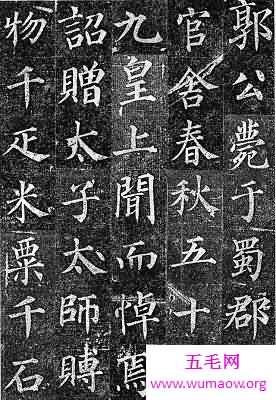 郭公薨于蜀郡
官舍春秋五十
九皇上聞而悼焉
詔贈太子太師賻
物千疋米粟千石
五毛网
www.wumaow.org